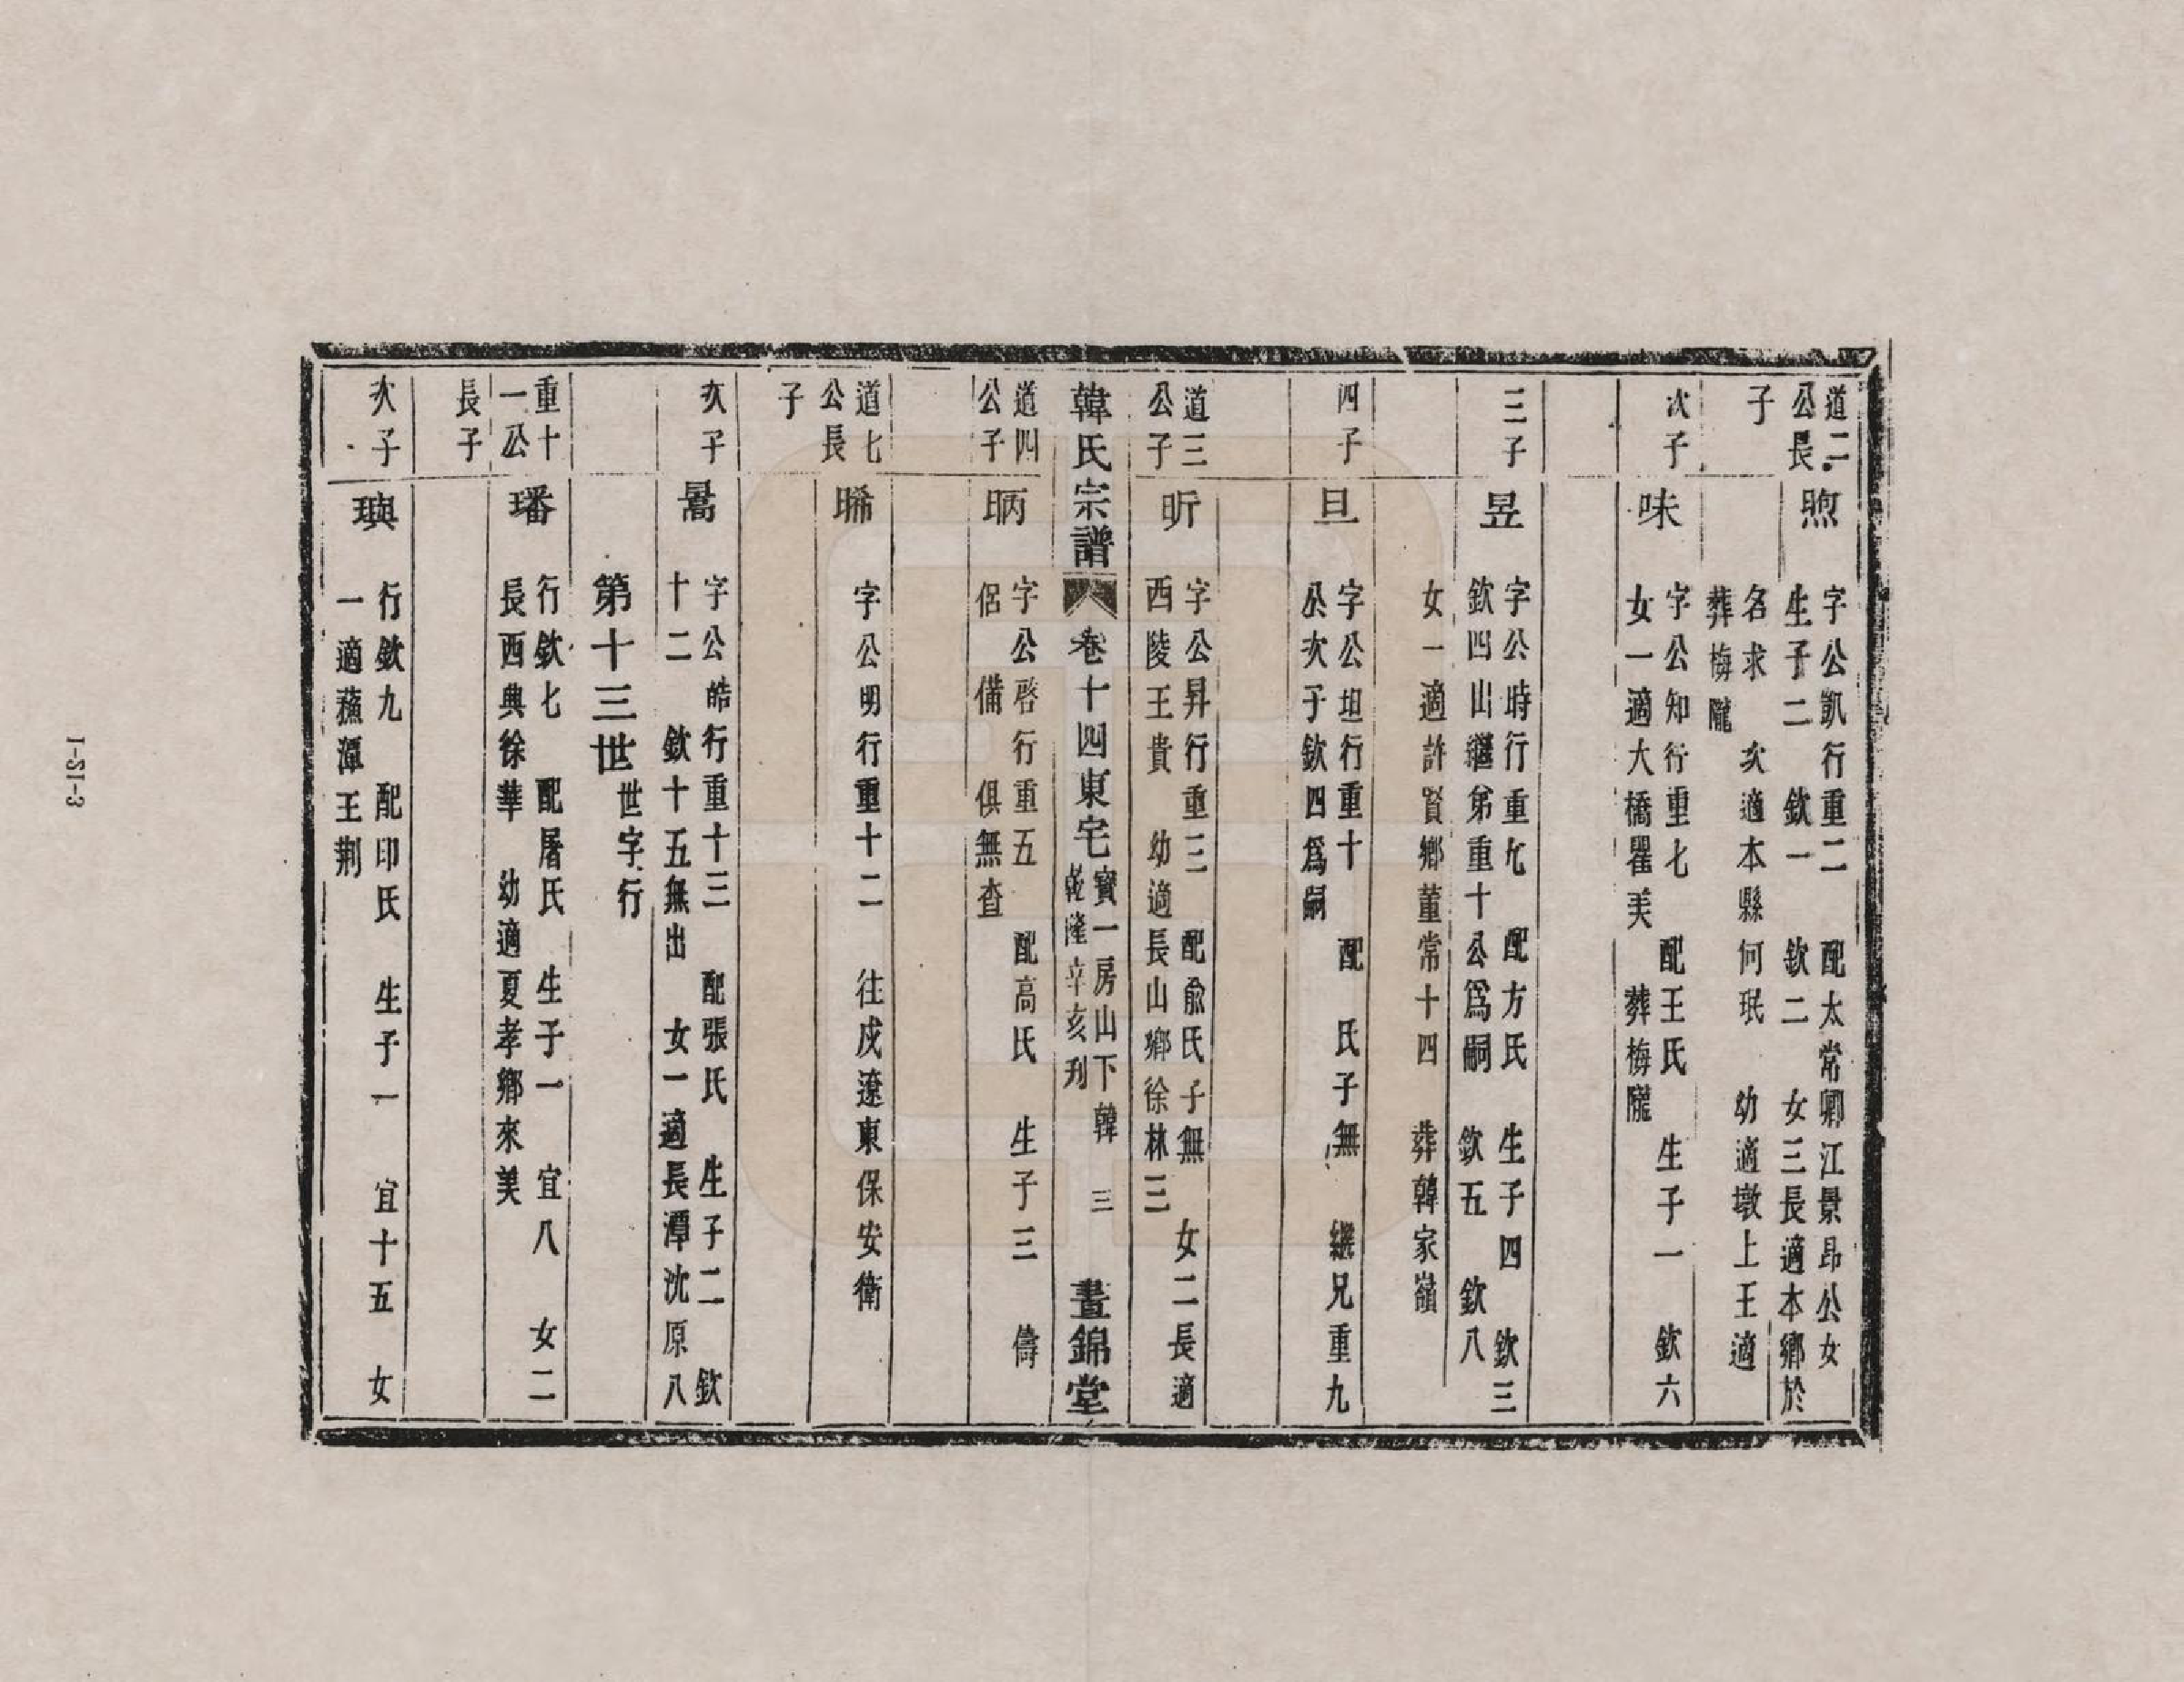 道二
公長
子
煦
字公凱行重二 配太常卿江景昂公女
生子二 欽一 欽二 女三長適本鄉於
名求 次適本縣何珉 幼適墩上王適
葬梅隴
次子
味
字公知行重七 配王氏 生子一 欽六
女一適大橋瞿美 葬梅隴
三子
昱
字公時行重九 配方氏 生子四 欽三
欽四出繼弟重十公爲嗣 欽五 欽八
女一適許賢鄉董常十四 葬韓家嶺
四子
旦
字公坦行重十 配 氏子無 繼兄重九
公次子欽四爲嗣
道三
公子
昕
字公昇行重三 配俞氏子無 女二長適
西陵王貴 幼適長山鄉徐林三
韓氏宗譜 卷十四東宅
寳一房山下韓 三
乾隆辛亥刋
晝錦堂
道四
公子
昞
字公啓行重五 配高氏 生子三 儔
侶 備 俱無查
道七
公長
子
晞
字公明行重十二 往戍遼東保安衛
次子
暠
字公皓行重十三 配張氏 生子二 欽
十二 欽十五無出 女一適長潭沈原八
第十三世
世字行
重十
一公
長子
璠
行欽七 配屠氏 生子一 宜八 女二
長西典徐華 幼適夏孝鄉來美
次子
璵
行欽九 配印氏 生子一 宜十五 女
一適蘓潭王荆
1-S1-3